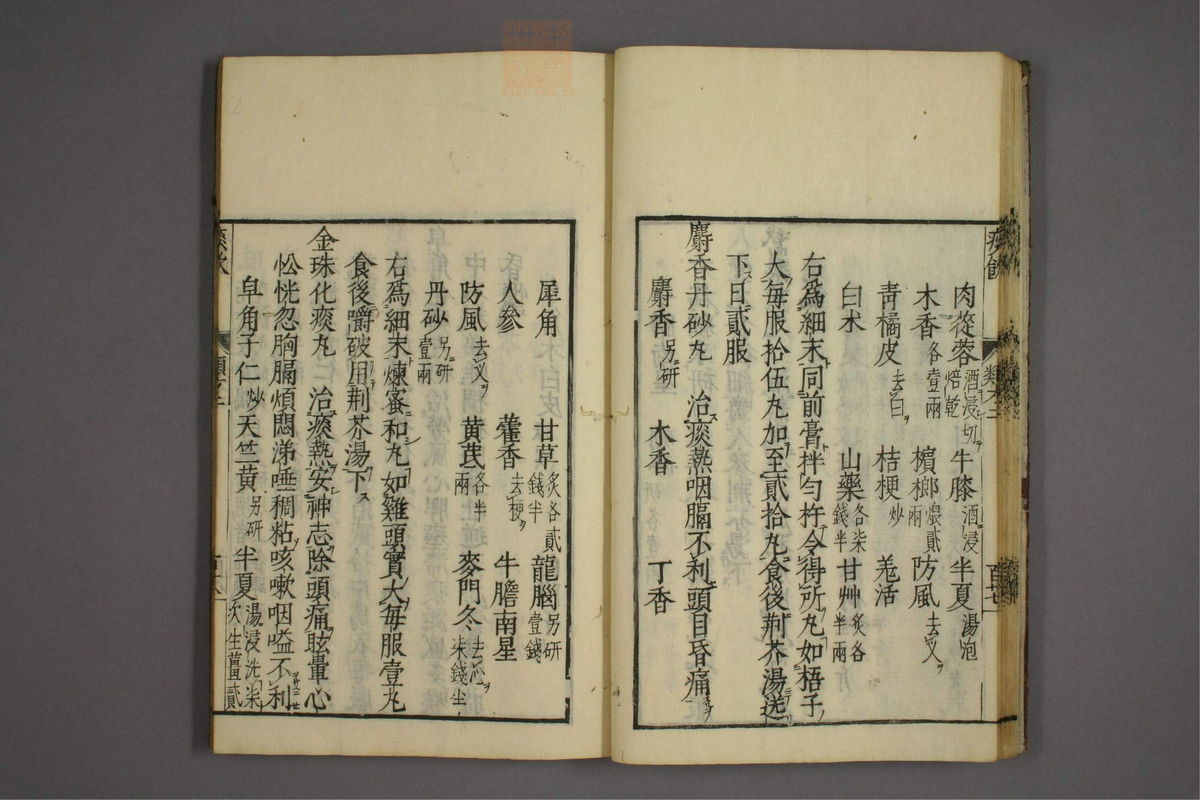 肉蓯蓉酒浸切焙乾 牛膝酒浸 半夏湯炮
木香各壹兩 檳榔煨貳兩 防風去叉
青橘皮去白 桔梗炒 羗活
白朮 山藥各柒錢半 甘艸炙各半兩
右爲細末同前膏拌勻杵令得所丸如梧子
大每服拾伍丸加至貳拾丸食後荆芥湯送
下日貳服
麝香丹砂丸 治痰熱咽膈不利頭目昏痛
麝香另研 木香 丁香
犀角 甘草炙各貳錢半 龍腦另研壹錢
人參 藿香去梗 牛膽南星
防風去叉 黄芪各半兩 麥門冬去心柒錢半
丹砂另研壹兩
右爲細末煉蜜和丸如雞頭實大每服壹丸
食後嚼破用荆芥湯下
金珠化痰丸 治痰熱安神志除頭痛眩暈心
忪恍忽胸膈煩悶涕唾稠粘咳嗽咽嗌不利
皁角子仁炒 天竺黄另研 半夏湯浸洗柒次生薑貳